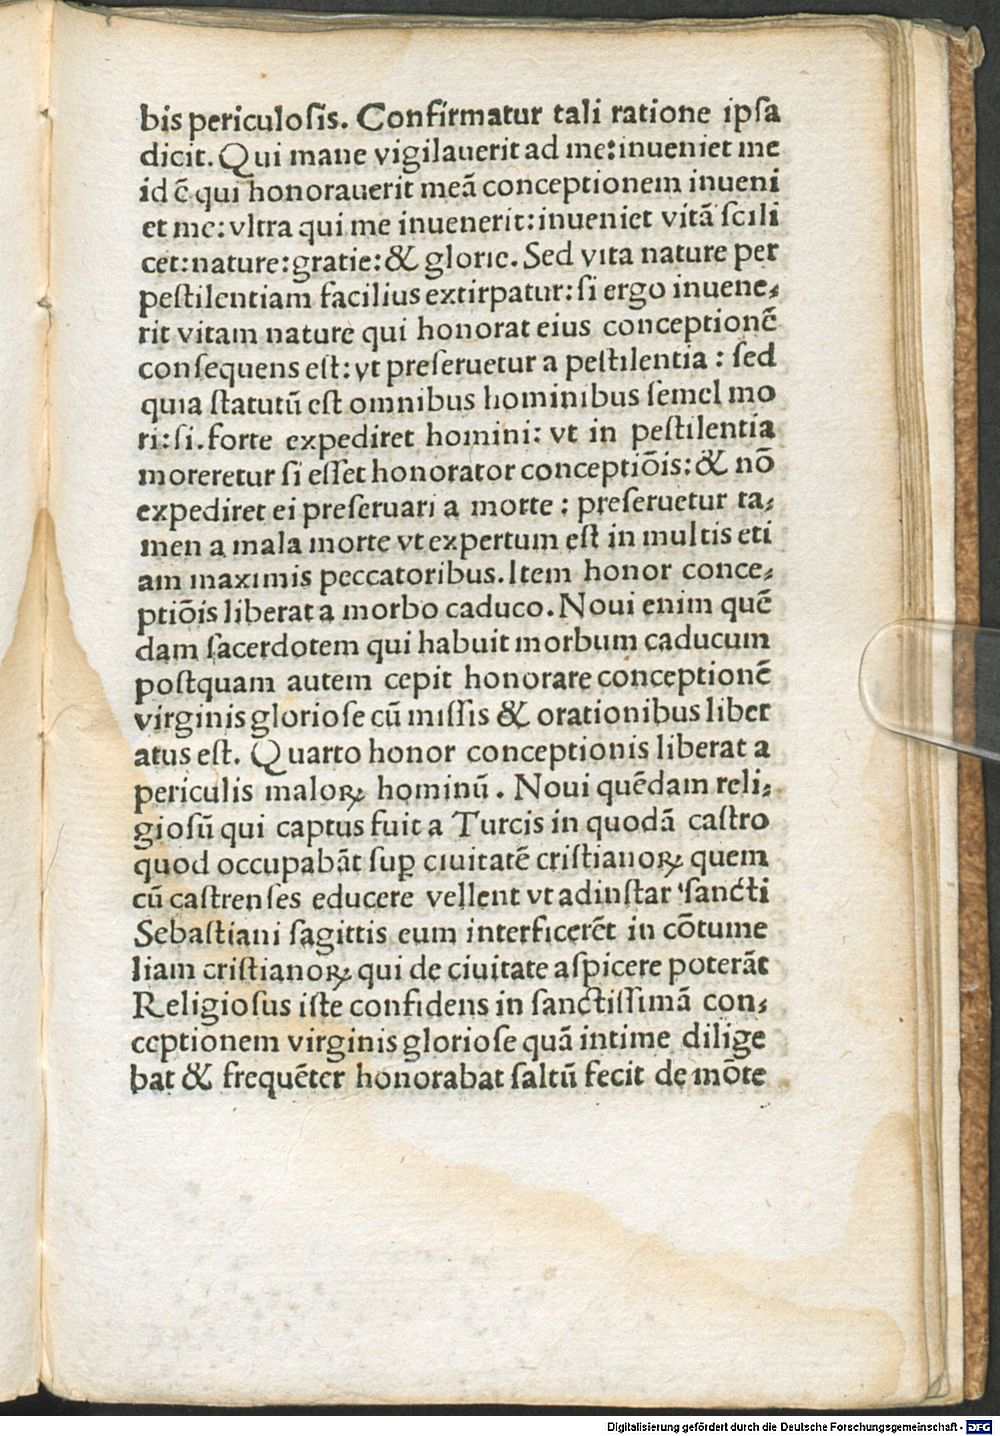 bis periculoſis. Confirmatur tali ratione ipſa
dicit. Qui mane vigilauerit ad me: inueniet me
id ē qui honorauerit meā conceptionem inueni
et me: vltra qui me inuenerit: inueniet vitā ſcili
cet: nature: gratie: & glorie. Sed vita nature per
peſtilentiam facilius extirpatur: ſi ergo inuene⸗
rit vitam nature qui honorat eius conceptionē
conſequens eſt: vt preſeruetur a peſtilentia : ſed
quia ſtatutū eſt omnibus hominibus ſemel mo
ri: ſi. forte expediret homini: vt in peſtilentia
moreretur ſi eſſet honorator conceptiōis: & nō
expediret ei preſeruari a morte : preſeruetur ta⸗
men a mala morte vt expertum eſt in multis eti
am maximis peccatoribus. Item honor conce⸗
ptiōis liberat a morbo caduco. Noui enim quē
dam ſacerdotem qui habuit morbum caducum
poſtquam autem cepit honorare conceptionē
virginis glorioſe cū miſſis & orationibus liber
atus eſt. Quarto honor conceptionis liberat a
periculis maloꝝ hominū . Noui quēdam reli⸗
gioſū qui captus fuit a Turcis in quodā caſtro
quod occupabāt ſuꝑ ciuitatē criſtianoꝝ quem
cū caſtrenſes educere vellent vt adinſtar ſancti
Sebaſtiani ſagittis eum interficerēt in cōtume
liam criſtianoꝝ qui de ciuitate aſpicere poterāt
Religioſus iſte confidens in ſanctiſſimā con⸗
ceptionem virginis glorioſe quā intime dilige
bat & frequēter honorabat ſaltū fecit de mōte
Digitalisierung gefördert durch die Deutsche Forschungsgemeinschaft - DFG